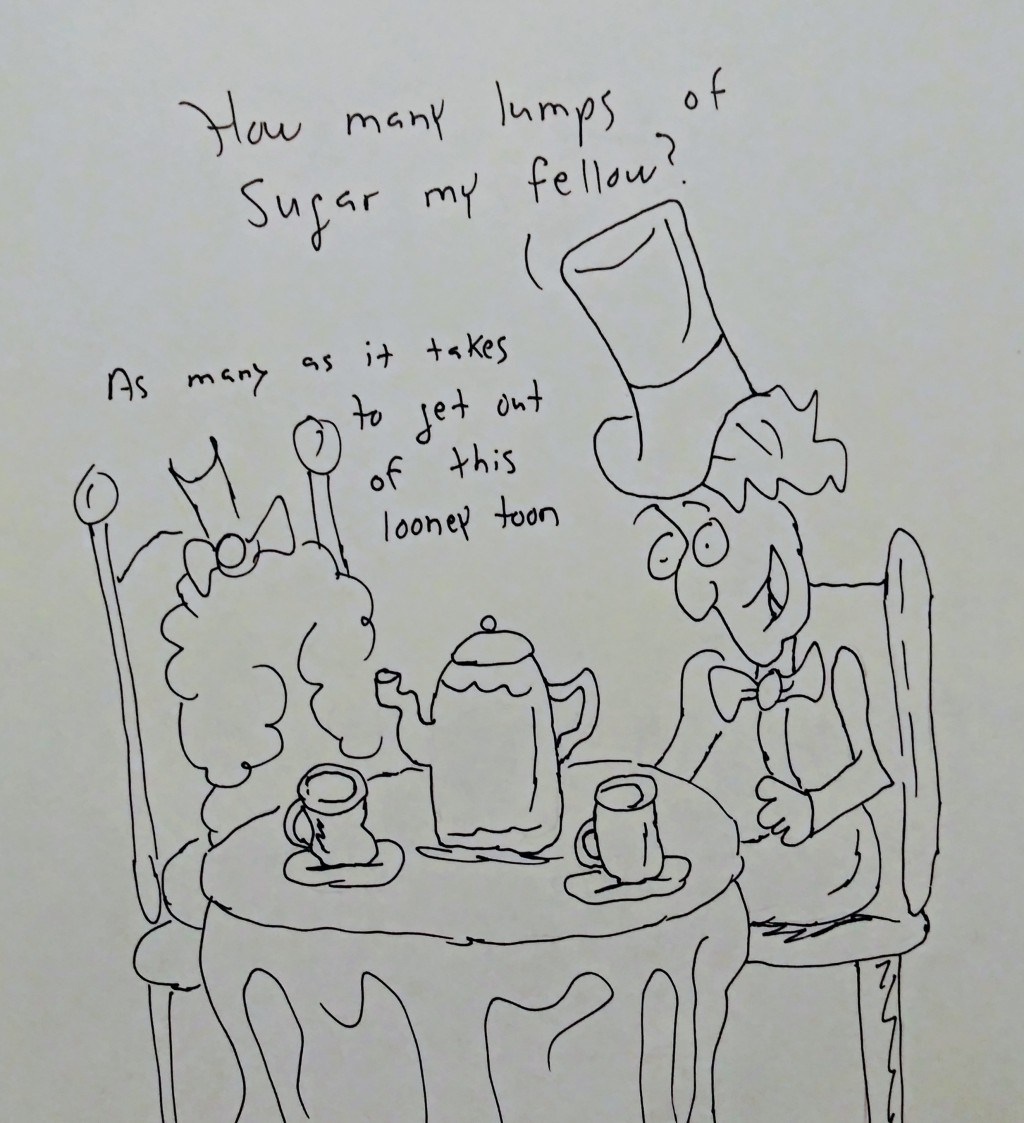 How many lumps of
Sugar my fellow?
As many as it takes
to get out
of this
looney toon